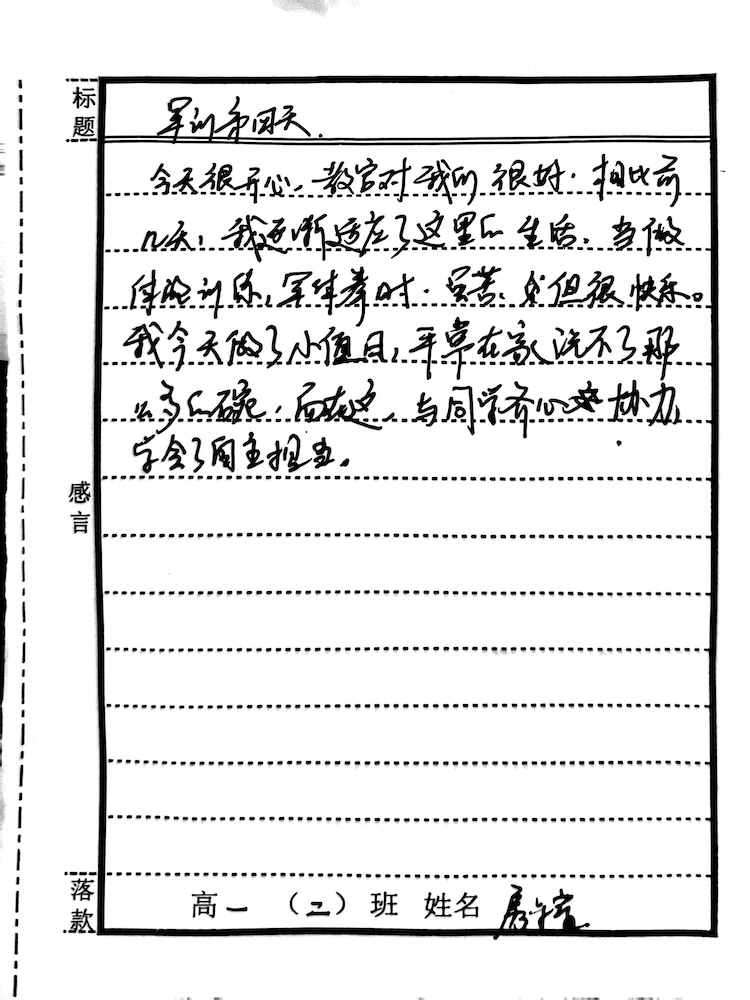 标题
军训第四天.
今天很开心,教官对我们很好.相比前
几天,我逐渐适应了这里的生活.当做
体能训练,军体拳时.虽苦,但很快乐。
我今天做了小值日,平常在家洗不了那
么多的碗,而在这,与同学齐心协力,
学会了自主担当。
感言
落款
高一(二)班 姓名